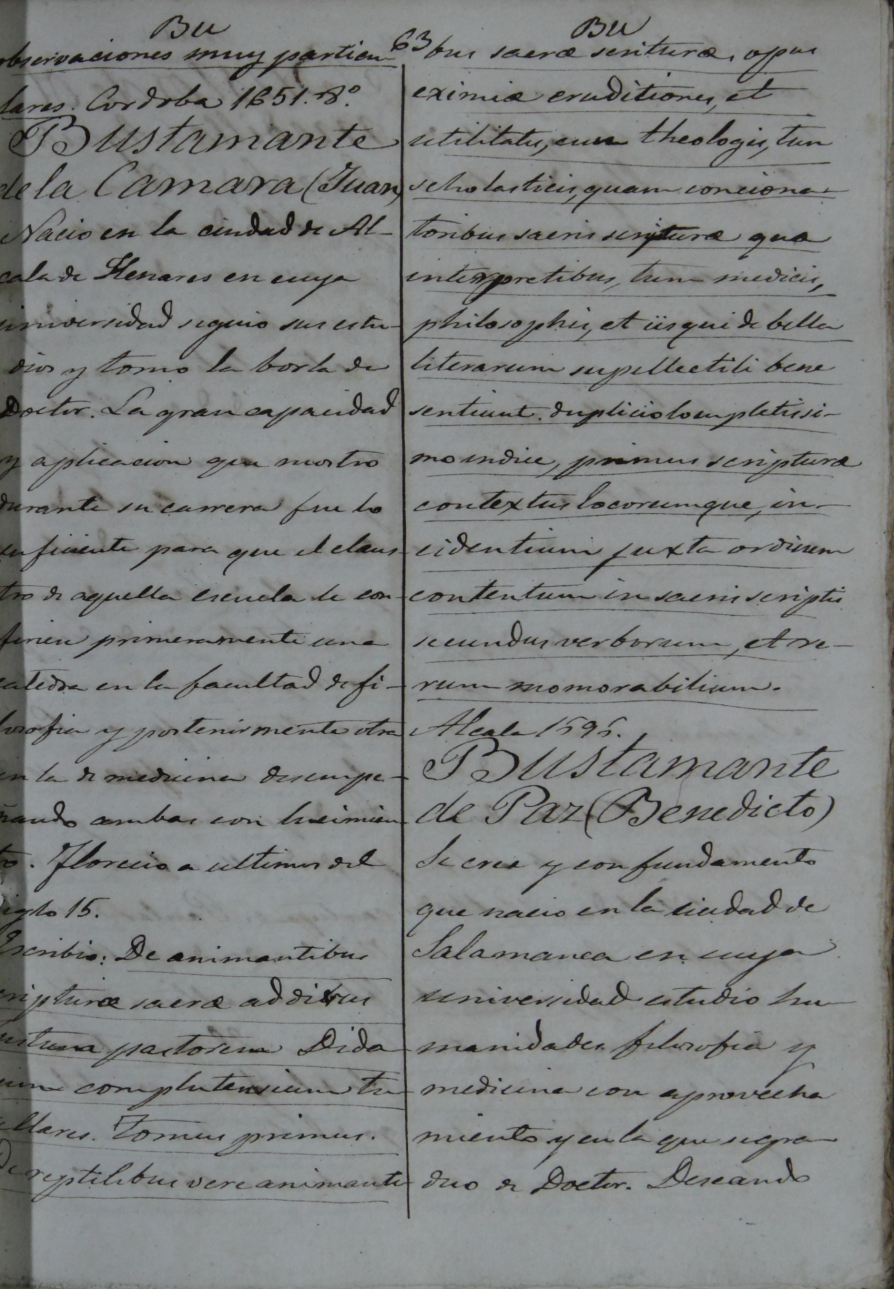 Bu
observaciones muy particu
lares. Cordoba 1651. 8º.
Bustamante
de la Camara (Juan)
Nacio en la ciudad de Al-
cala de Henares en cuya
universidad seguio sus estu-
dios y tomo la borla de
Doctor. La gran capacidad
y aplicacion que mostro
durante su carrera fue lo
suficiente para que el claus-
tro de aquella escuela le con-
firieu primeramente una
catedra en la facultad de fi-
losofia y posteriormente otra
en la de medicina desempe-
ñando ambas con lucimien
to. Florecio a ultimos del
siglo 15.
Escribio: De animantibus
scripturæ sacræ ad
pastorem Dida
cum complutensium tu
Tomus primus.
De reptilibus vere animanti
63
Bu
bus sacræ scrituræ, opus
eximiæ eruditiones, et
utilitatis, cum theologis, tum
scholasticis, quam conciona-
toribus sacris scripturæ quæ
interpretibus, tum medicis,
philosophis, et iis qui de bella
literarum supellectili bene
sentiunt. duplici locupletisi-
mo indice, primus scripturæ
contextus locorumque, in-
cidentium juxta ordinem
contentum in sacris scriptis
secundus verborum, et re-
rum momorabilium.
Alcala 1595.
Bustamante
de Paz (Benedicto)
Se cree y con fundamento
que nacio en la ciudad de
Salamanca en cuya
universidad estudio hu-
manidades filosofia y
medicina con aprovecha
miento y en la que se gra-
duo de Doctor. Deseando